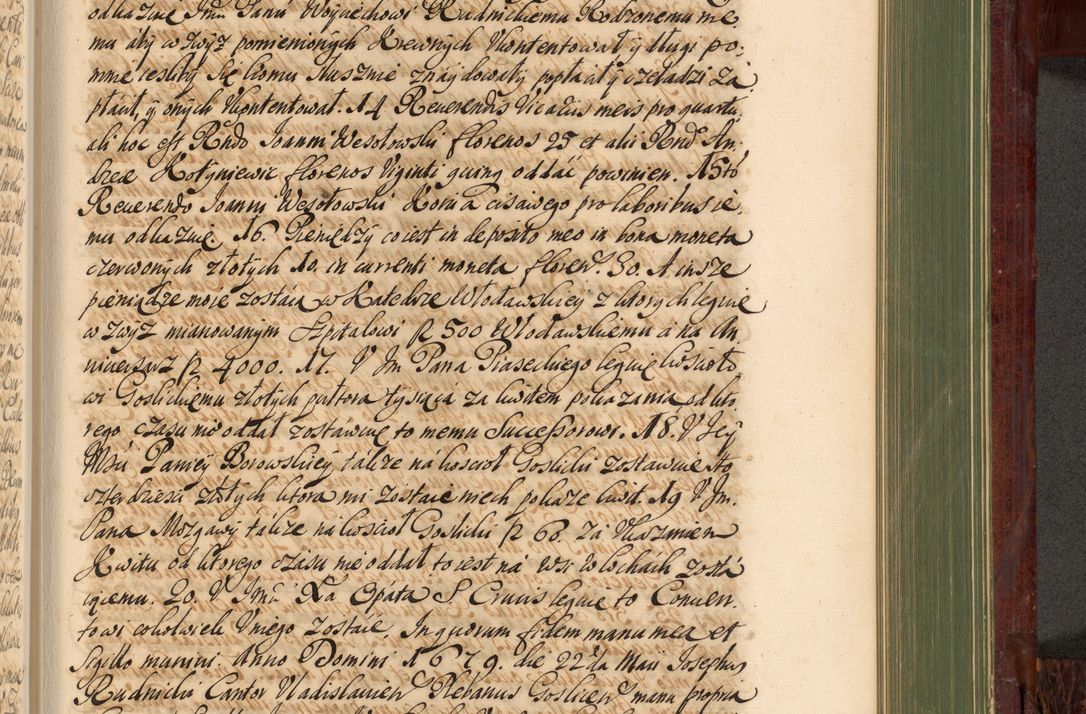 odkazuie Jmu Panu Woyciechowi Rudnickiemu Rodzonemu me
mu aby w zwyż pomienionych Krewnych Vkontentował y długi po
mnie resliby się komu słusznie znaydowały popłacił y czeladzi za
płacił, y onych Vkontentował. 14 Reuerendis Vicariis meis pro quartu
ali hoc est Rndo Joanni Wesołowski florenos 25 et alii Rnd. An,
dreæ Kołgniewic florenos Viginti quinq oddać powinien. 15to
Reuerendo Joanni Wesołowski Konia cisawego pro laboribus ie,
mu odkazuie. 16. Pieniędzy co iest in deposito meo in bona moneta
czerwonych złotych 10. in currenti moneta floren. 30. A insze
pieniądze moie zostaią w Katedrze Włodawskiey z ktorych leguie
w zwyż mianowanym Szpitalowi fl 500 Włodawskiemu a na An,
niuersarz fl 4000. 17. V Jm Pana Piaseckiego leguie koscioło,
wi Goslickiemu złotych pułtora tysiąca za kwitem pokazania od kto,
rego czasu nie oddał zostawuię to memu Successorowi. 18. V Jey
Mści Panney Borowskiey, także na koscioł Goslicki zostawuie sto
czterdziesci złotych ktora mi zostaie niech pokaże kwit. 19 V Jm.
Pana Mozgawy także na koscioł Goslicki fl 60. za Vkazaniem
Kwitu od ktorego czasu nie oddał, to iest na Wsi Wlochach zosta
iącemu. 20. V Jmci Xa Opata S Crucis leguie to Conuen,
towi cokolwiek V niego zostaie. In quorum fidem manu mea et
sigillo muniui. Anno Domini 1679. die 22da Maii Josephus
Rudnicki Cantor Vladislauien Plebanus Goslicen manu propria